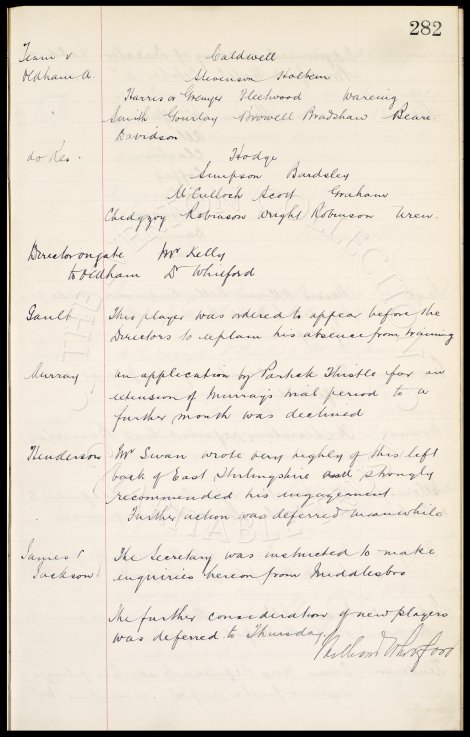 282
Team v Caldwell
Oldham A. Stevenson Holbem
Harris or Grenyer Fleetwood Wareing
Smith Gourlay Browell Bradshaw Beare
Davidson
do Res. Hodge
Simpson Bardsley
McCulloch Scott Graham
Chedgzoy Robinson Wright Robinson Uren.
Director on gate Mr Kelly
to Oldham Dr Whitford
Gault This player was ordered to appear before the
Directors to explain his absence from training
Murray an application by Partick Thistle for an
extension of Murray's trial period to a
further month was declined
Henderson Mr Swan wrote very highly of this left
back of East Stirlingshire and strongly
recommended his engagement.
Further action was deferred meanwhile
James The Secretary was instructed to make
Jackson enquiries hereon from Middlesbro
The further consideration of new players
was deferred to Thursday